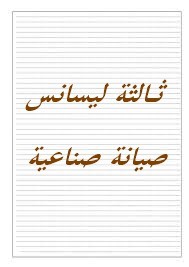 ثالثة ليسانس
صيانة صناعية